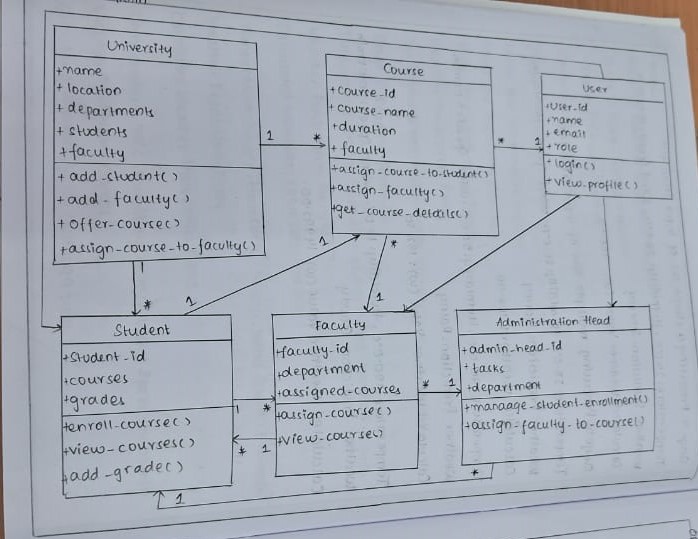 University
+name
+ location
+ departments
+ students
+ faculty
+ add-student()
+ add-faculty()
+ offer-course()
+assign-course-to-faculty()
Course
+course-id
+ course-name
+duration
+ faculty
+assign-course-to-student()
+assign-faculty()
+get-course-details()
User
+User-id
+name
+email
+role
+ login()
+view-profile()
1
*
*
1
1
*
1
1
*
1
Student
+Student-id
+courses
+grades
+enroll-course()
+view-courses()
+add-grade()
Faculty
+faculty-id
+department
+assigned-courses
+assign-course()
+view-course()
Administration Head
+admin-head-id
+ tasks
+department
+manaage-student-enrollment()
+assign-faculty-to-course()
1
*
*
1
*
1
*
1